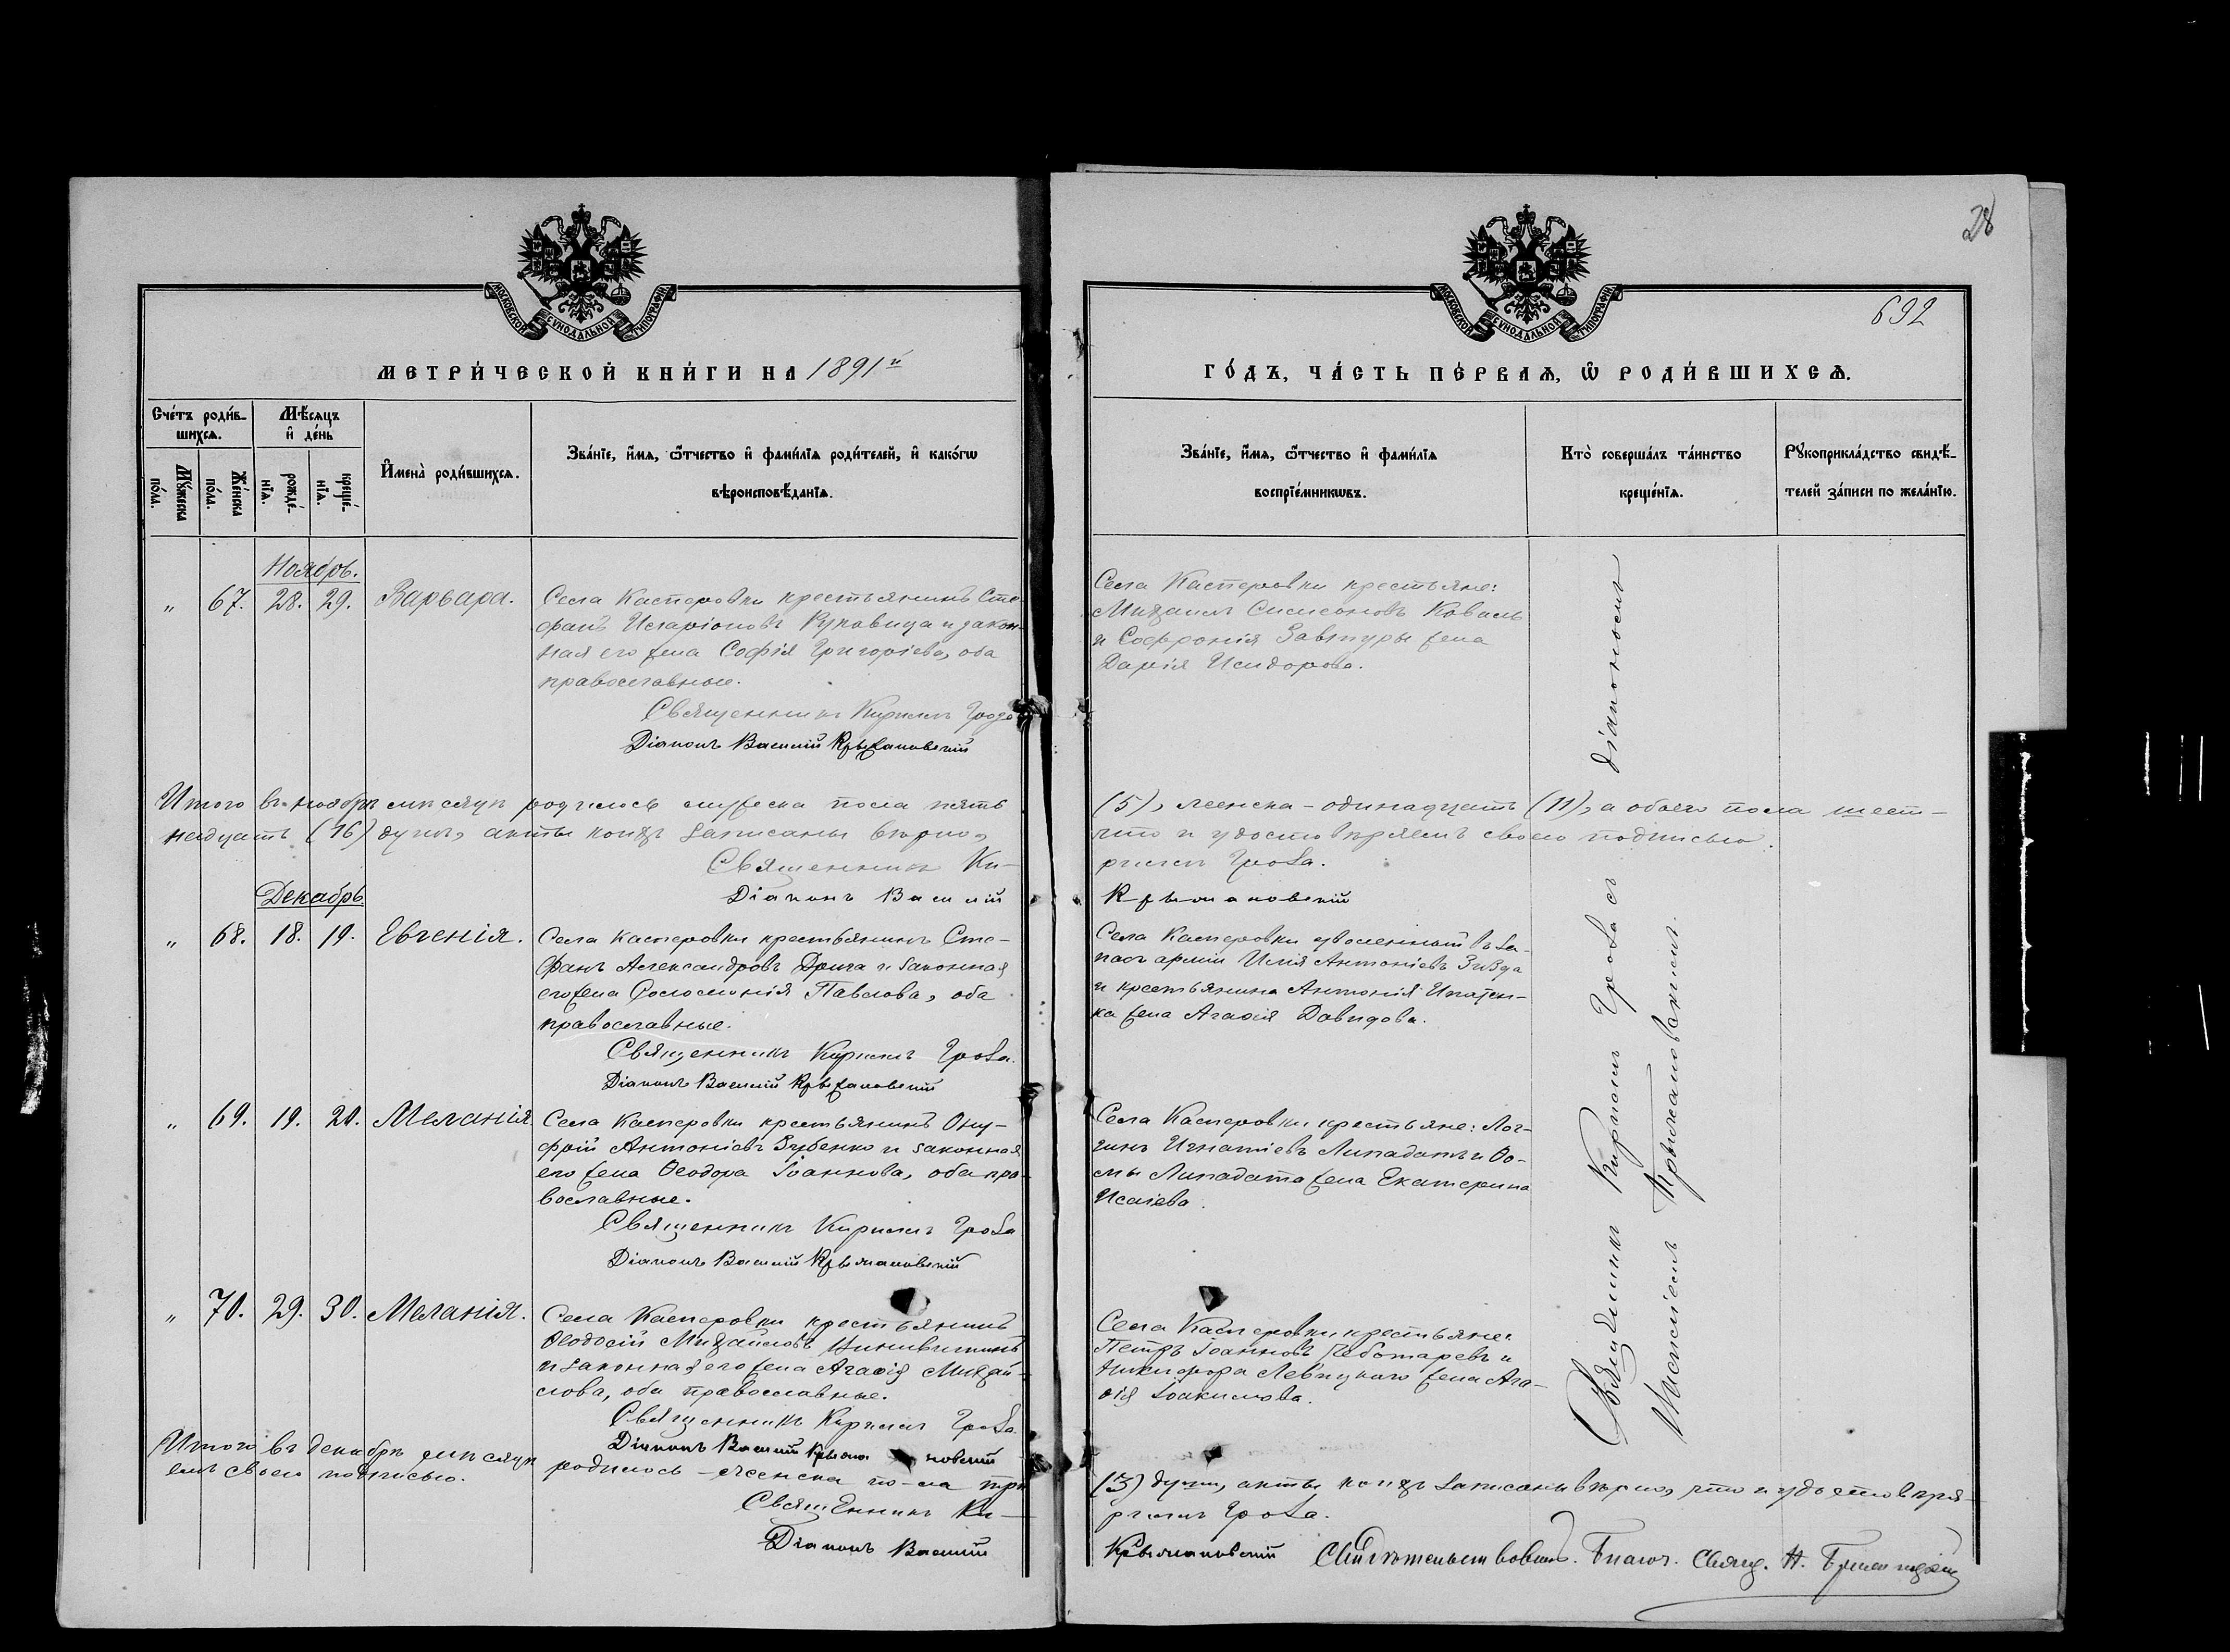 28
692
МОСКОВСКОЙ СѴНОДАЛЬНОЙ ТИПОГРАФІИ
МОСКОВСКОЙ СѴНОДАЛЬНОЙ ТИПОГРАФІИ
МЕТРИ́ЧЕСКОЙ КНИ́ГИ НА 1891й
ГО́ДЪ, ЧА́СТЬ ПЕ́РВАѦ, Ѡ҆ РОДИ́ВШИХСѦ.
Сче́тъ роди́в-
шихсѧ.
Мѣ́сѧцъ
и҆ де́нь
Мꙋ́жеска
по́ла.
Же́нска
по́ла.
рожде́-
нїѧ.
креще́-
нїѧ.
И҆мена̀ роди́вшихсѧ.
Зва́нїе, и҆́мѧ, ѻ҆́тчество и҆ фами́лїѧ роди́телей, и҆ како́гѡ
вѣроисповѣ́данїѧ.
Зва́нїе, и҆́мѧ, ѻ҆́тчество и҆ фами́лїѧ
воспрїе́мникѡвъ.
Кто̀ соверша́лъ та́инство
креще́нїѧ.
Рꙋкоприкла́дство свидѣ́-
телей за́писи по жела́нїю.
Ноябрь.
„ 67. 28. 29. Варвара.
Села Касперовки крестьянинъ Сте-
фанъ Иларіоновъ Рукавица и закон-
ная его жена Софія Григоріева, оба
православные.
Священникъ Кириллъ Гроза
Діаконъ Василій Крыжановскій
Села Касперовки крестьяне:
Михаилъ Симеоновъ Коваль
и Софронія Завтуры жена
Дарія Исидорова.
Итого въ ноябрѣ мѣсяцѣ родилось мужеска пола пять
(5), женска - одинадцать (11), а обоего пола шест-
надцать (16) душъ, акты коихъ записаны вѣрно,
что и удостовѣряемъ своею подписью.
Священникъ Ки-
риллъ Гроза.
Діаконъ Василій
Крыжановскій
Декабрь
„ 68. 18. 19. Евгенія.
Села Касперовки крестьянинъ Сте-
фанъ Александровъ Дрига и законная
его жена Соломонія Павлова, оба
православные.
Священникъ Кириллъ Гроза.
Діаконъ Василій Крыжановскій
Села Касперовки уволенный въ за-
пасъ арміи Илія Антоніевъ
и крестьянина Антонія
жена Агаѳія Давидова.
„ 69. 19. 20. Меланія
Села Касперовки крестьянинъ Ону-
фрій Антоніевъ Зубенко и законная
его жена Ѳеодора Іоаннова, оба пра-
вославные.
Священникъ Кириллъ Гроза
Діаконъ Василій Крыжановскій
Села Касперовки крестьяне: Лог-
гинъ Игнатіевъ Липадатъ и Ѳо-
мы Липадата жена Екатерина
Исаіева.
„ 70. 29. 30. Меланія.
Села Касперовки крестьянинъ
Ѳеодосій Михайловъ
и законная его жена Агаѳія Михай-
лова, оба православные.
Священникъ Кириллъ Гроза
Діаконъ Василій Крыжановскій
Села Касперовки крестьяне:
Петръ Іоанновъ Чеботаревъ и
Никифора Левицкаго жена Ага-
ѳія Іоакимова.
Священникъ Кириллъ Гроза съ діакономъ
Василіемъ Крыжановскимъ.
Итого въ декабрѣ мѣсяцѣ родилось - женска по-ла три
(3) души, акты коихъ записаны вѣрно, что и удостовѣря-
емъ своею подписью.
Священникъ Ки-
риллъ Гроза.
Діаконъ Василій
Крыжановскій
Свидѣтельствовалъ. Благоч. Свящ. Н.